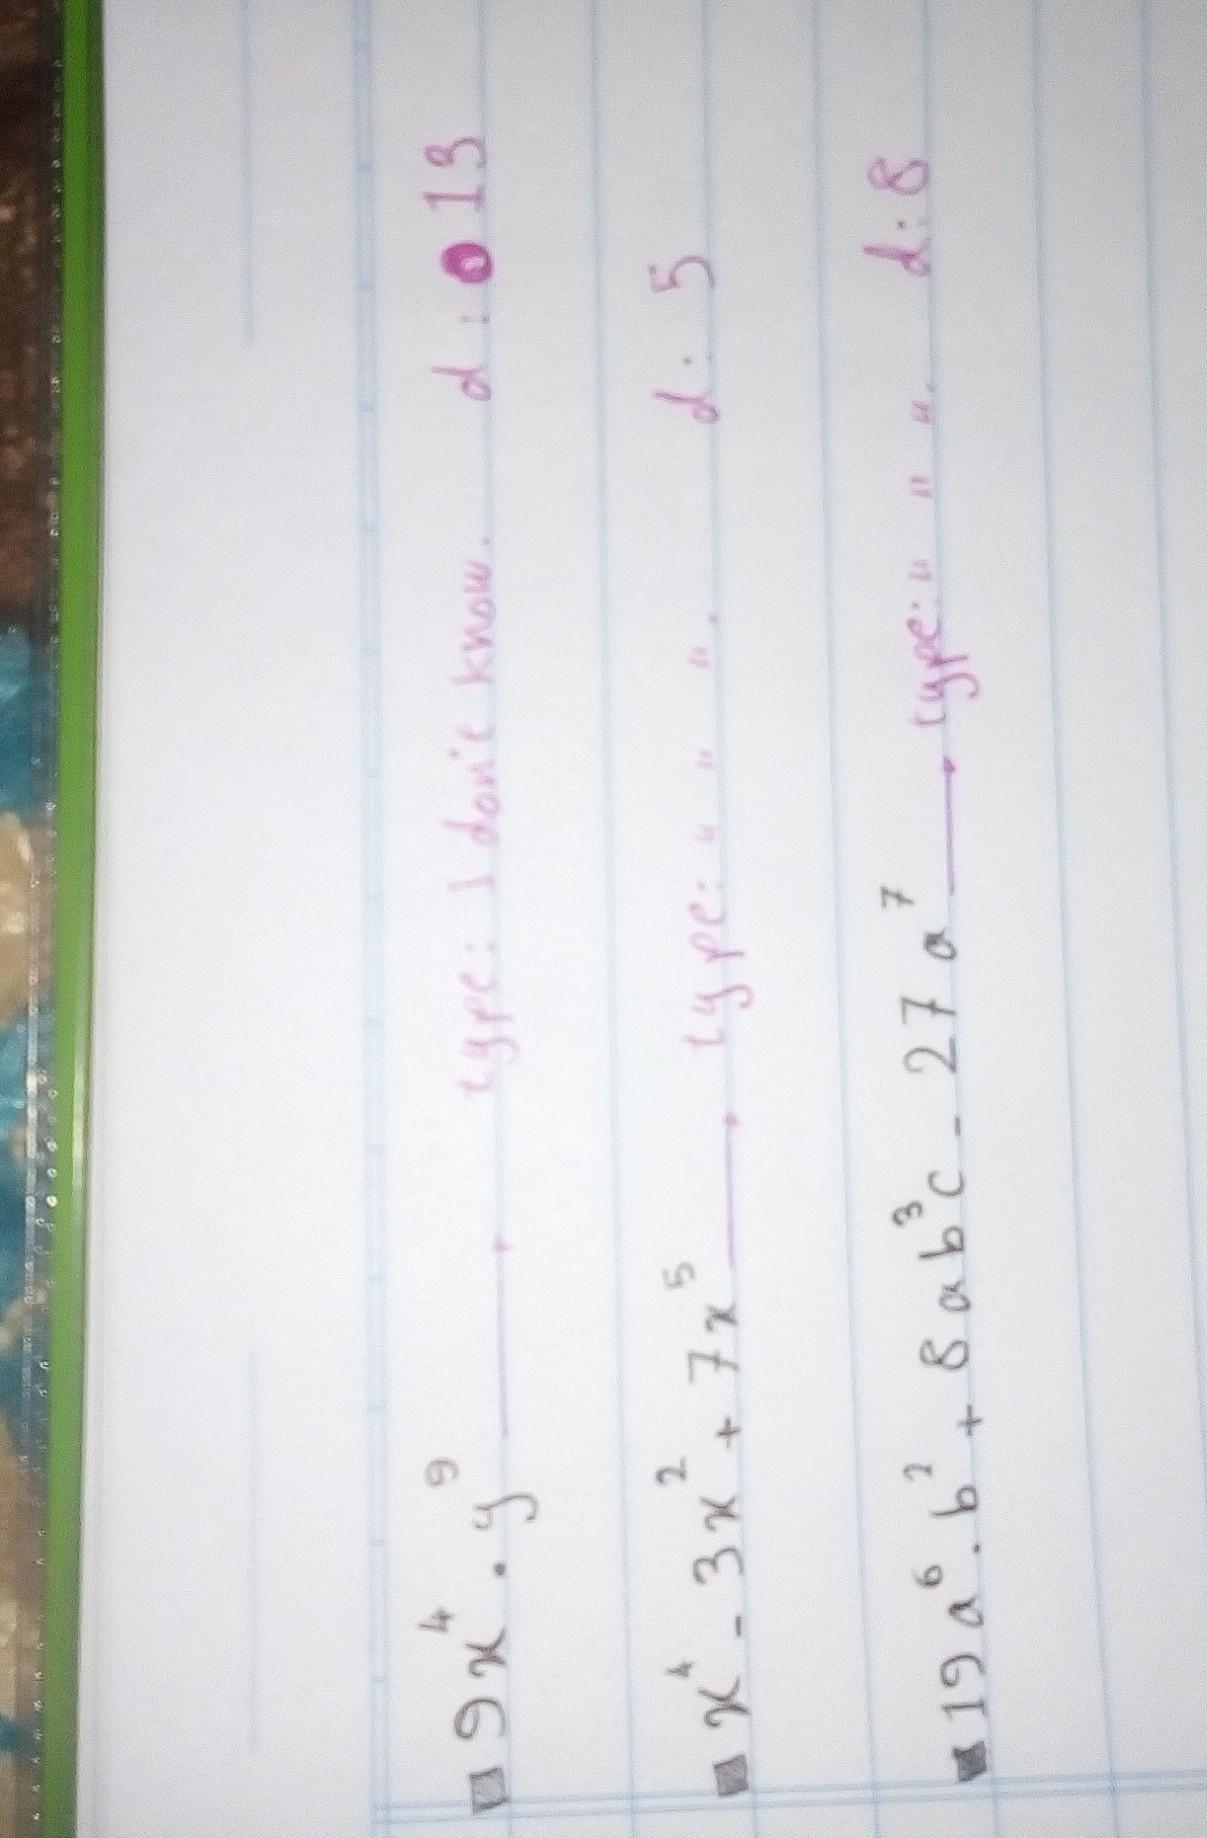 9x⁴ · y⁹ → type: I don't know. d: 13
x⁴ - 3x² + 7x⁵ → type: " " " . d: 5
19a⁶ . b² + 8ab³c - 27a⁷ → type: " " " ". d: 8